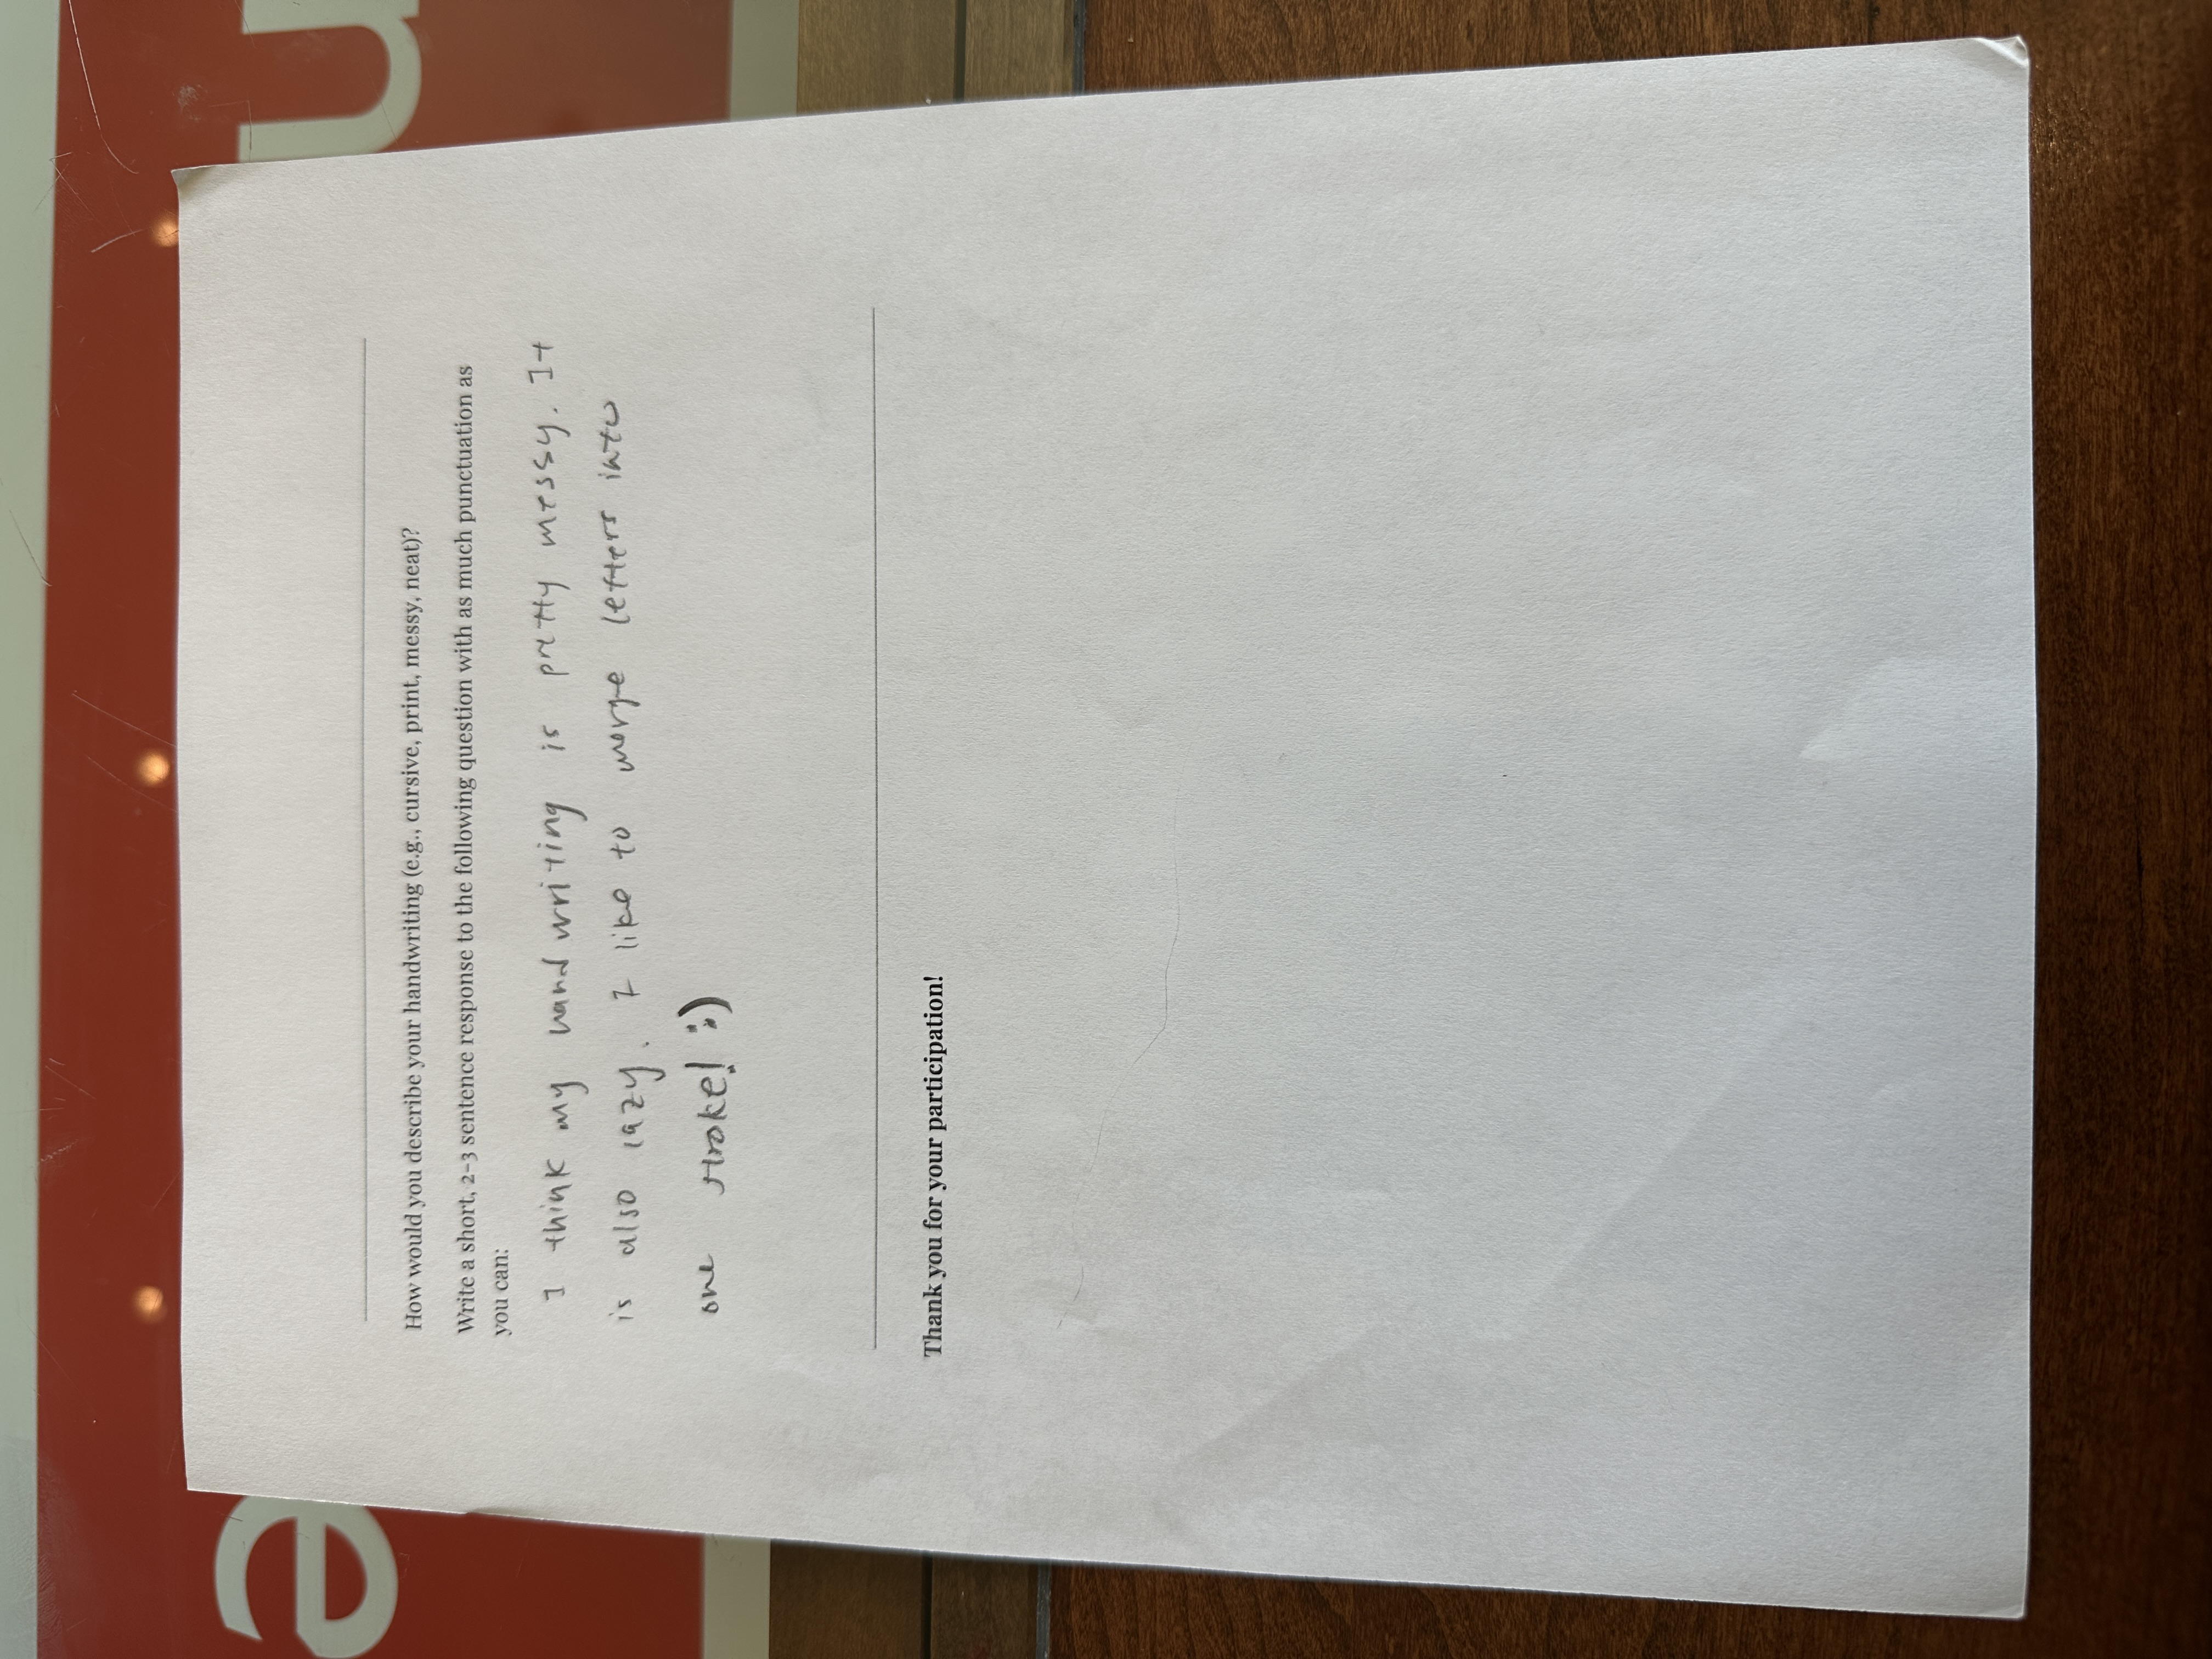 How would you describe your handwriting (e.g., cursive, print, messy, neat)?
Write a short, 2-3 sentence response to the following question with as much punctuation as
you can:
I think my handwriting is pretty messy. It
is also lazy. I like to merge letters into
one stroke! :)
Thank you for your participation!